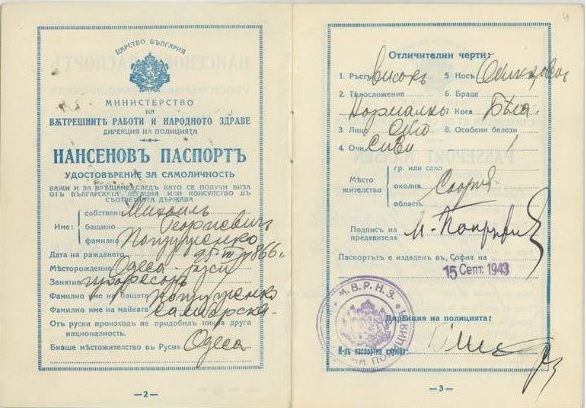 ЦАРСТВО БЪЛГАРИЯ
МИНИСТЕРСТВО
НА
ВѪТРЕШНИТѢ РАБОТИ И НАРОДНОТО ЗДРАВЕ
ДИРЕКЦИЯ НА ПОЛИЦИЯТА
НАНСЕНОВЪ ПАСПОРТЪ
УДОСТОВЕРЕНИЕ ЗА САМОЛИЧНОСТЬ
ВАЖИ И ЗА ВРЪЩАНЕ СЛЕДЪ КАТО СЕ ПОЛУЧИ ВИЗА
ОТЪ БЪЛГАРСКАТА ЛЕГАЦИЯ ИЛИ КОНСУЛСТВО ВЪ
СЪОТВЕТНАТА ДЪРЖАВА
собствено Михаилъ
Име: бащино Георгиевич
фамилно Попруженко
Дата на раждането 25 VII 1866 г.
Мѣсторождение Одеса - Русия
Занятие професоръ
Фамилно име на бащата Попруженко
Фамилно име на майката
Отъ руски произходъ не придобилъ никоя друга
националность.
Бивше мѣстожителство въ Русия Одеса
—2—
4
Отличителни черти:
1. Ръстъ високъ 5. Носъ
2. Тѣлосложение 6. Брада
Нормално Коса Бѣла
3. Лице 6. Особени белези
4. Очи Сиви
гр. или село
Мѣсто
жителство околия София
область
Подпись на
предявителя М. Попруженко
Паспортътъ е издаденъ въ София на
15 Септ. 1943
М.В.Р.Н.З.
Дирекция на полицията:
Н-къ паспортна служба:
—3—